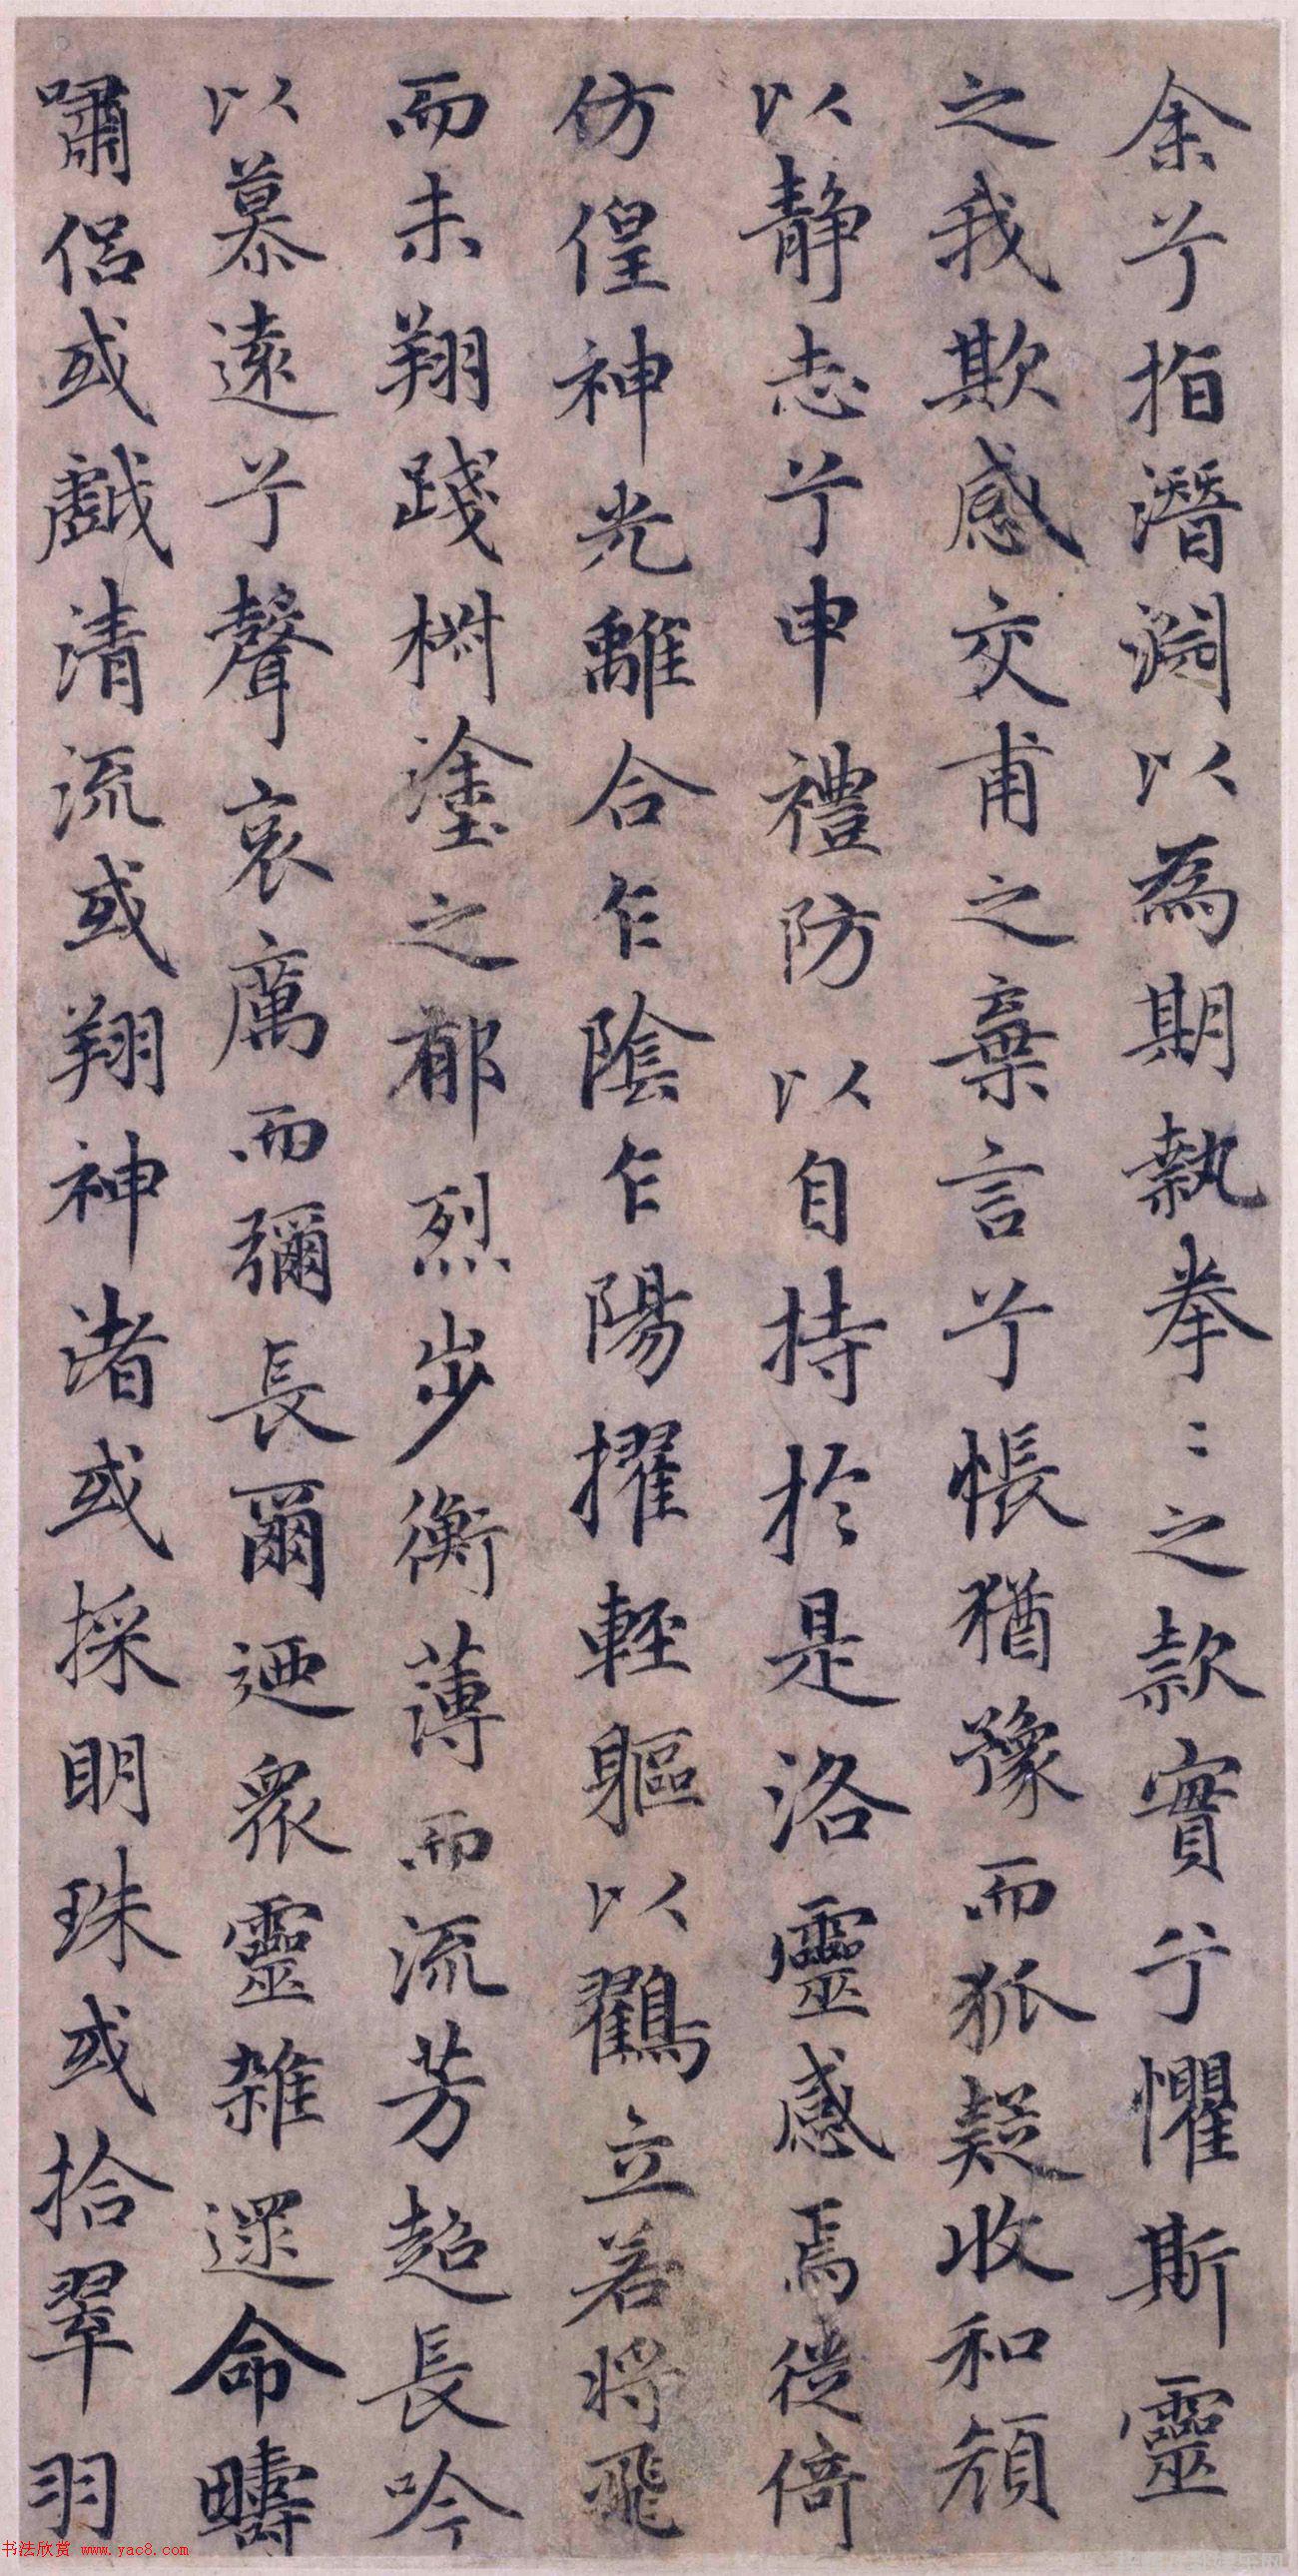 余兮指潛淵以為期執拳〻之款實兮懼斯靈
之我欺感交甫之棄言兮悵猶豫而狐疑收和顏
以靜志兮申禮防以自持於是洛靈感焉徙倚
仿偟神光離合乍陰乍陽擢輕軀以鸖立若將飛
而未翔踐椒塗之郁烈步衡薄而流芳超長吟
以慕遠兮聲哀厲而彌長爾迺衆靈雜遝命疇
嘯侶或戲清流或翔神渚或採明珠或拾翠羽
书法欣赏 www.yac8.com